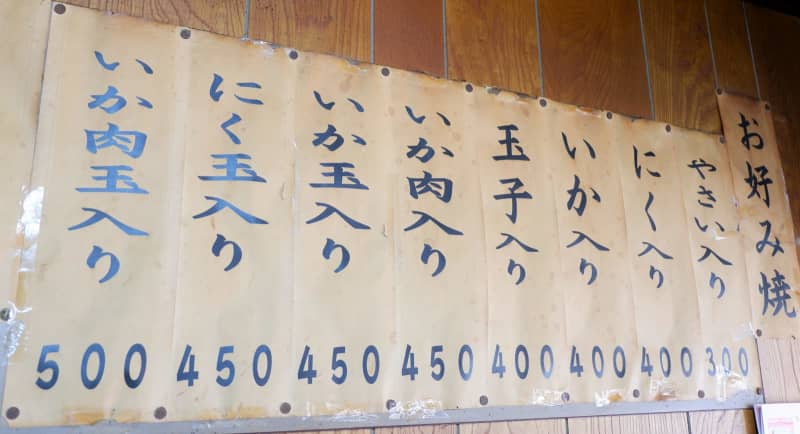 お好み焼
やさい入り 300
にく入り 400
いか入り 400
玉子入り 400
いか肉入り 450
いか玉入り 450
にく玉入り 450
いか肉玉入り 500